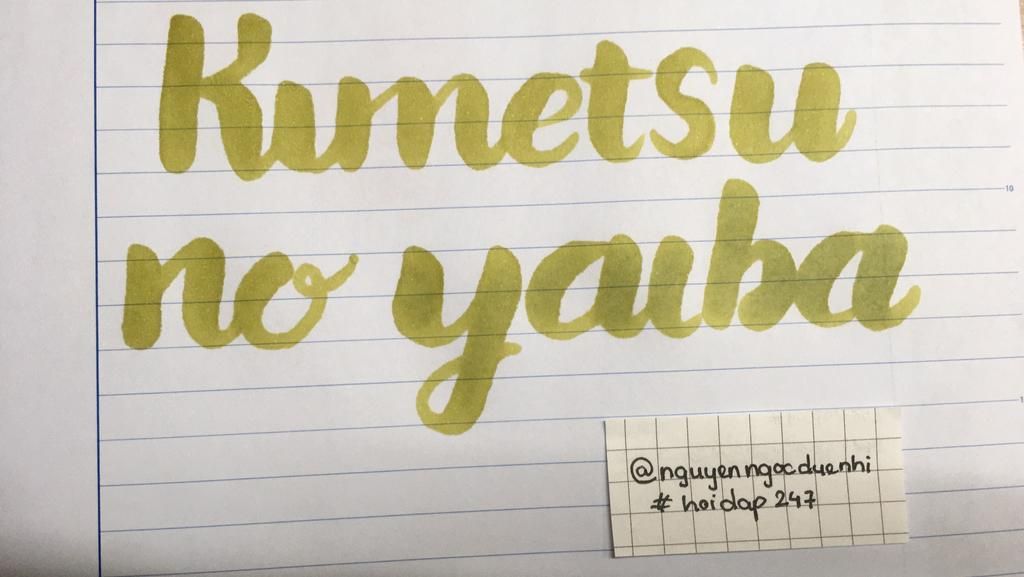 Kimetsu
no yaiba
10
@nguyenngocduenhi
# hoidap 247